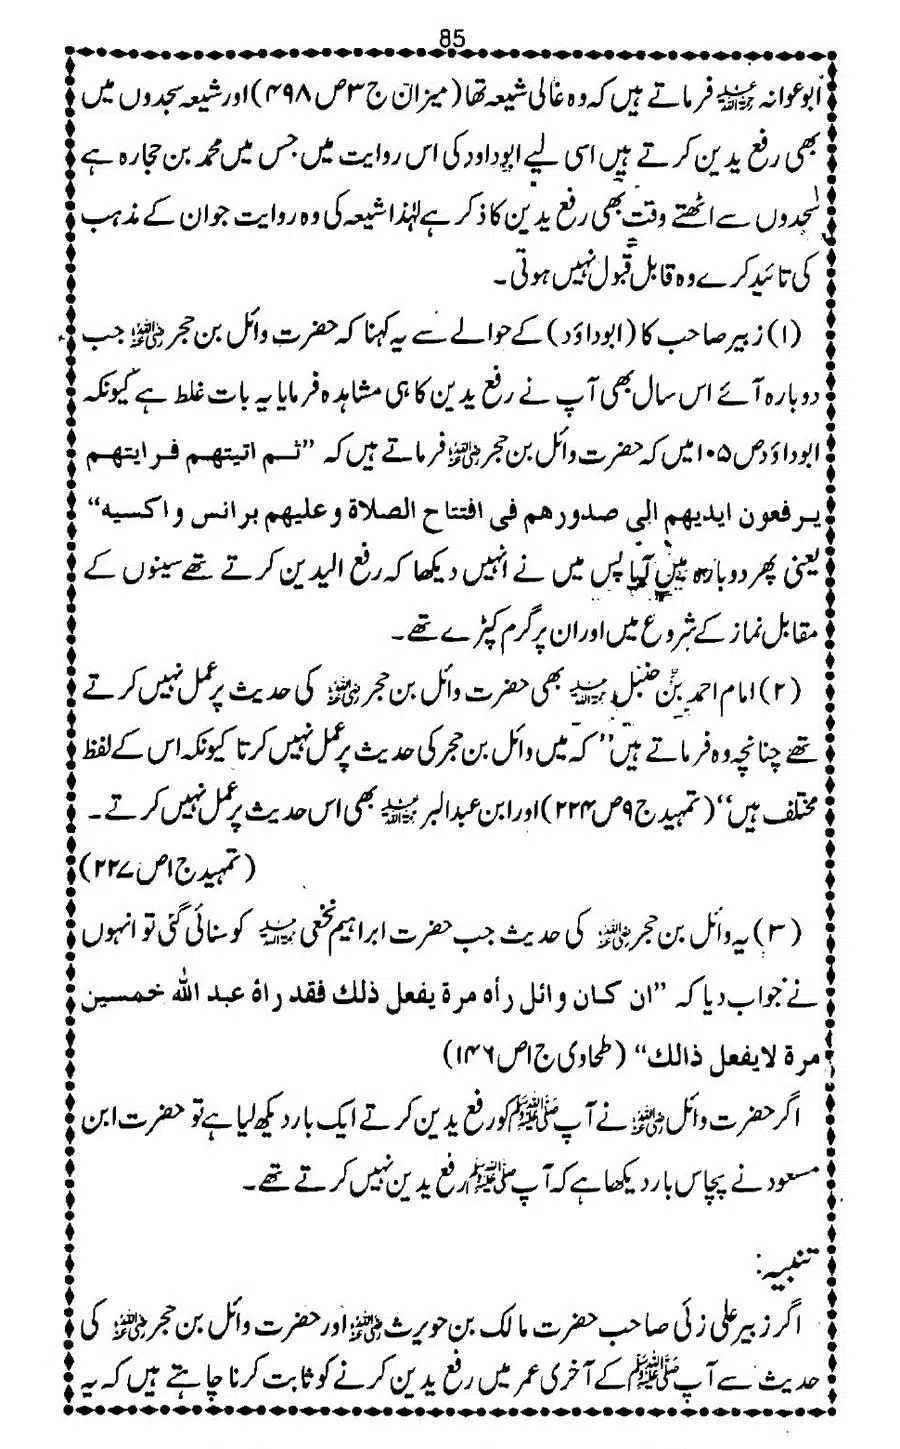 85
ابوعوانہ رحمۃ اللہ علیہ فرماتے ہیں کہ وہ غالی شیعہ تھا (میزان ج ۳ ص ۴۹۸) اور شیعہ سجدوں میں
بھی رفع یدین کرتے ہیں اسی لیے ابوداود کی اس روایت میں جس میں محمد بن حجارہ ہے
سجدوں سے اٹھتے وقت بھی رفع یدین کا ذکر ہے لہٰذا شیعہ کی وہ روایت جو ان کے مذہب
کی تائید کرے وہ قابل قبول نہیں ہوتی۔
(۱) زبیر صاحب کا (ابوداؤد) کے حوالے سے یہ کہنا کہ حضرت وائل بن حجر رضی اللہ عنہ جب
دوبارہ آئے اس سال بھی آپ نے رفع یدین کا ہی مشاہدہ فرمایا یہ بات غلط ہے کیونکہ
ابوداؤد ص ۱۰۵ میں کہ حضرت وائل بن حجر رضی اللہ عنہ فرماتے ہیں کہ ”ثم اتیتهم فرایتهم
یرفعون ایدیهم الی صدورهم فی افتتاح الصلاة وعلیهم برانس واکسیه“
یعنی پھر دوبارہ میں آیا پس میں نے انہیں دیکھا کہ رفع الیدین کرتے تھے سینوں کے
مقابل نماز کے شروع میں اور ان پر گرم کپڑے تھے۔
(۲) امام احمد بن حنبل رحمۃ اللہ علیہ بھی حضرت وائل بن حجر رضی اللہ عنہ کی حدیث پر عمل نہیں کرتے
تھے چنانچہ وہ فرماتے ہیں ”کہ میں وائل بن حجر کی حدیث پر عمل نہیں کرتا کیونکہ اس کے لفظ
مختلف ہیں“ (تمہید ج ۹ ص ۲۲۴) اور ابن عبدالبر رحمۃ اللہ علیہ بھی اس حدیث پر عمل نہیں کرتے۔
(تمہید ج ۱ ص ۲۲۷)
(۳) یہ وائل بن حجر رضی اللہ عنہ کی حدیث جب حضرت ابراہیم نخعی رحمۃ اللہ علیہ کو سنائی گئی تو انہوں
نے جواب دیا کہ ”ان کان وائل رأه مرة یفعل ذلك فقد راٰه عبد الله خمسین
مرة لایفعل ذالك“ (طحاوی ج ۱ ص ۱۴۶)
اگر حضرت وائل رضی اللہ عنہ نے آپ ﷺ کو رفع یدین کرتے ایک بار دیکھ لیا ہے تو حضرت ابن
مسعود نے پچاس بار دیکھا ہے کہ آپ ﷺ رفع یدین نہیں کرتے تھے۔
تنبیہ:
اگر زبیر علی زئی صاحب حضرت مالک بن حویرث رضی اللہ عنہ اور حضرت وائل بن حجر رضی اللہ عنہ کی
حدیث سے آپ ﷺ کے آخری عمر میں رفع یدین کرنے کو ثابت کرنا چاہتے ہیں کہ یہ